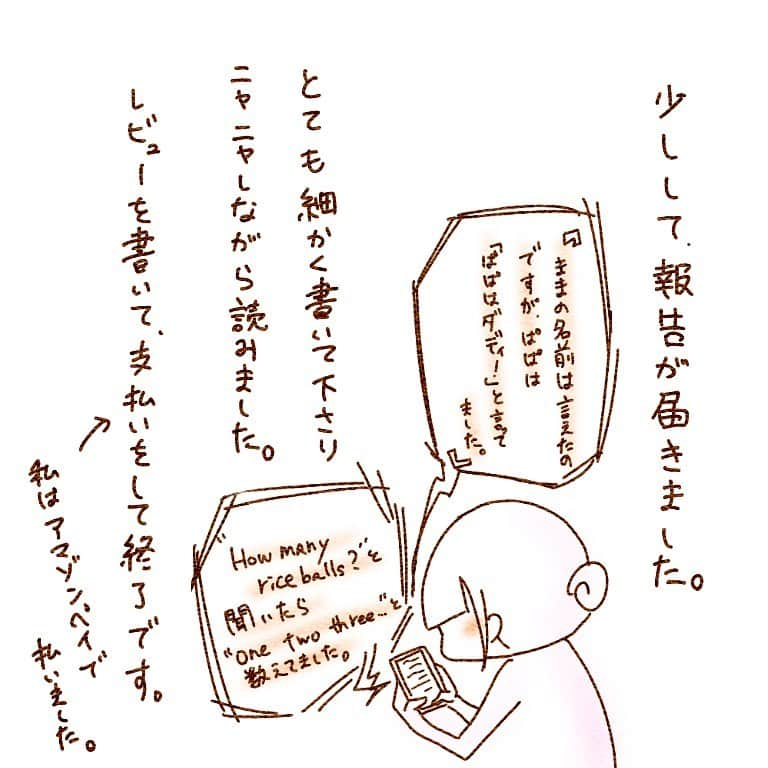 少しして、報告が届きました。
『ままの名前は言えたの
ですが、ぱぱは
「ぱぱはダディ!」と言って
ました。』
とても細かく書いて下さり
ニヤニヤしながら読みました。
"How many
rice balls?"と
聞いたら
"one two three…"と
数えてました。
レビューを書いて、支払いをして終了です。
私はアマゾンペイで
払いました。